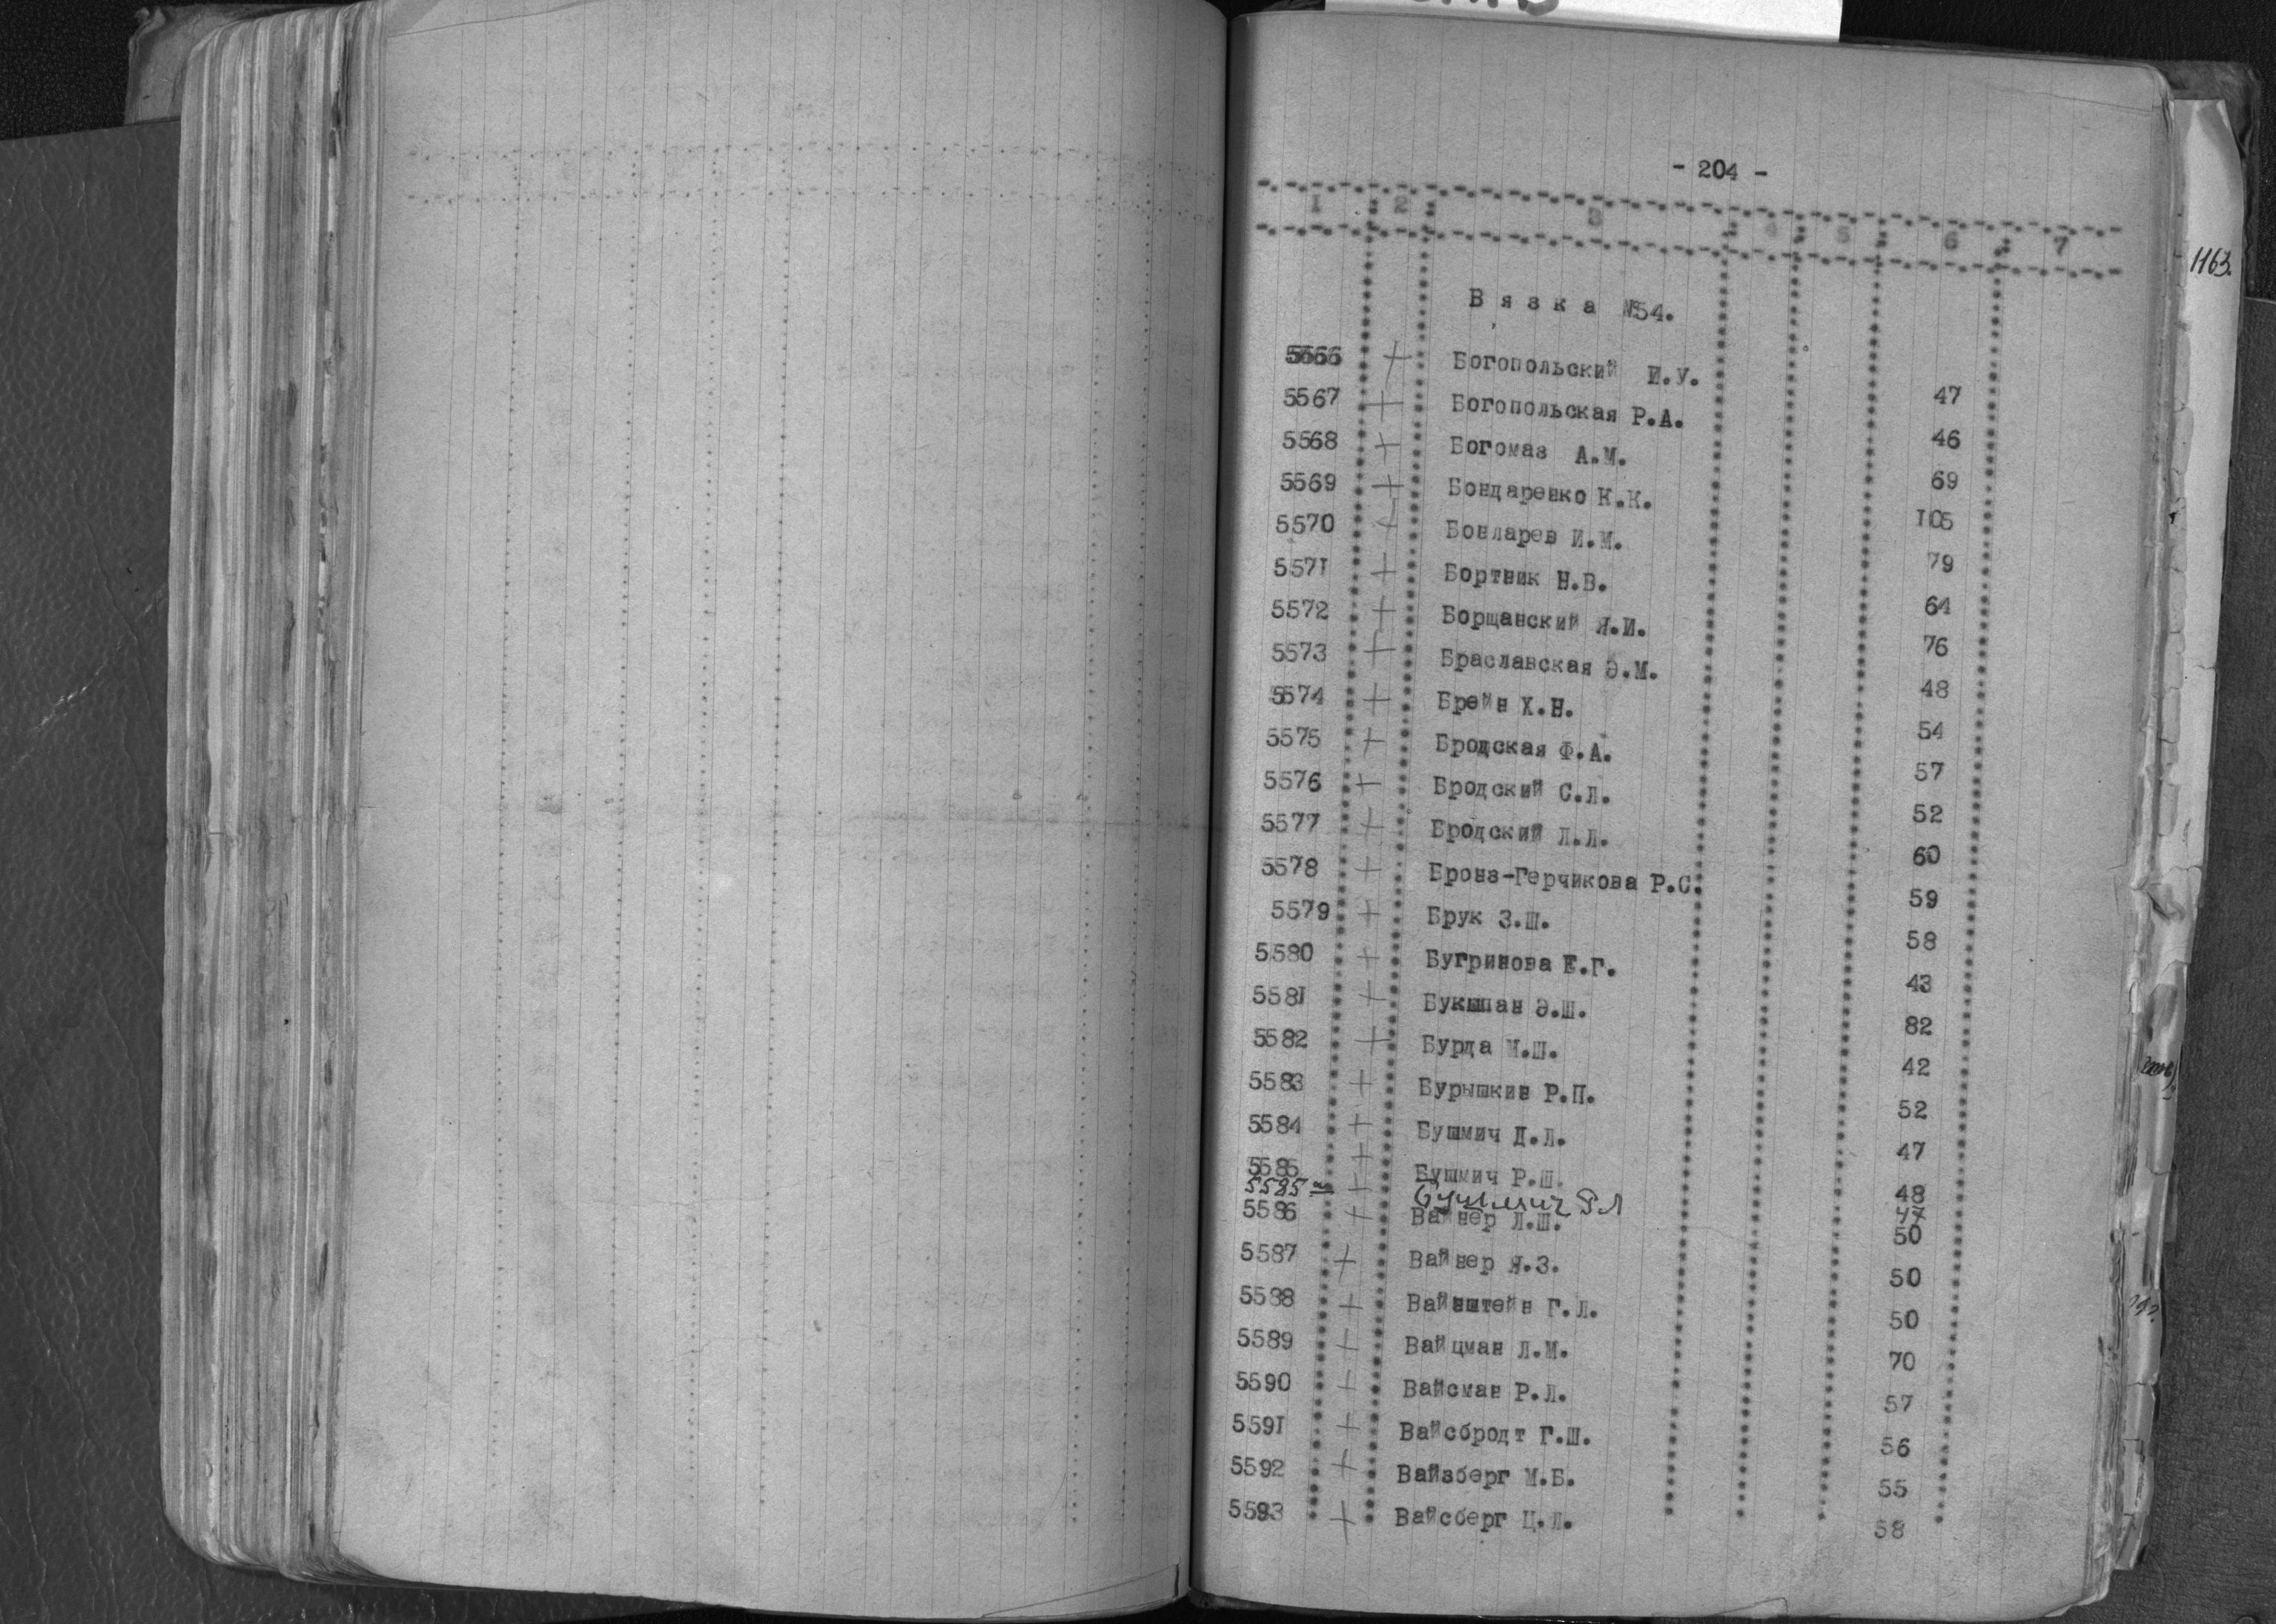 - 204 -
1 2 3 4 5 6 7
1163.
Вязка №54.
5566 + Богопольский И.У. 47
5567 + Богопольская Р.А. 46
5568 + Богомаз А.М. 69
5569 + Бондаренко К.К. 105
5570 + Бонларев И.М. 79
5571 + Бортник Н.В. 64
5572 + Борщанский Я.И. 76
5573 + Браславская Э.М. 48
5574 + Брейн Х.Н. 54
5575 + Бродская Ф.А. 57
5576 + Бродский С.Л. 52
5577 + Бродский Л.Л. 60
5578 + Бронз-Герчикова Р.С. 59
5579 + Брук З.Ш. 58
5580 + Бугринова Е.Г. 43
5581 + Букшпан Э.Ш. 82
5582 + Бурда М.Ш. 42
5583 + Бурышкин Р.П. 52
5584 + Бушмич Д.Л. 47
5585 + Бушмич Р.Ш. 48
5585а + Бушмич Р Л 47
5586 + Вайнер Л.Ш. 50
5587 + Вайнер Я.З. 50
5588 + Вайнштейн Г.Л. 50
5589 + Вайцман Л.М. 70
5590 + Вайсман Р.Л. 57
5591 + Вайсбродт Г.Ш. 56
5592 + Вайзберг М.Б. 55
5593 + Вайсберг Ц.Л. 58